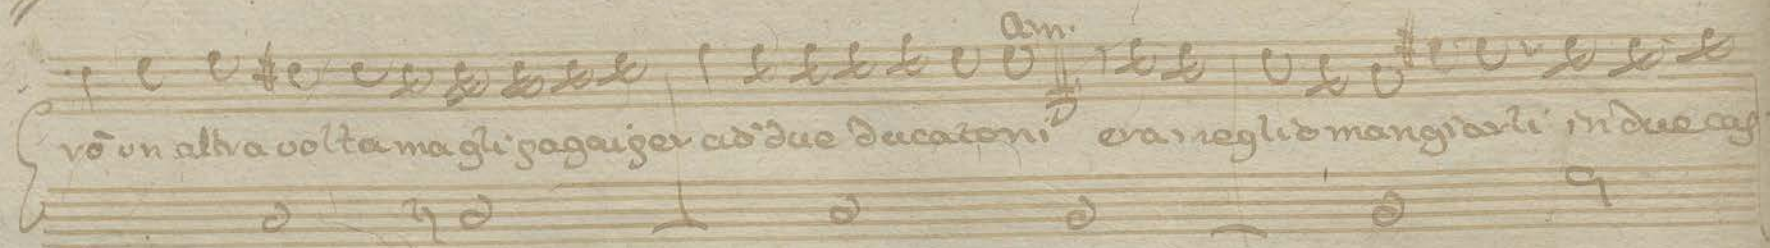 Am.
rò un altra volta ma gli pagai per ciò due ducatoni era meglio mangiarli in due cap